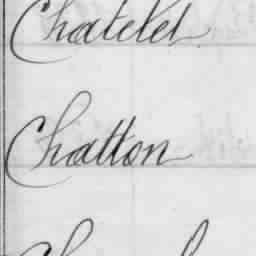 Chatelet
Chatton